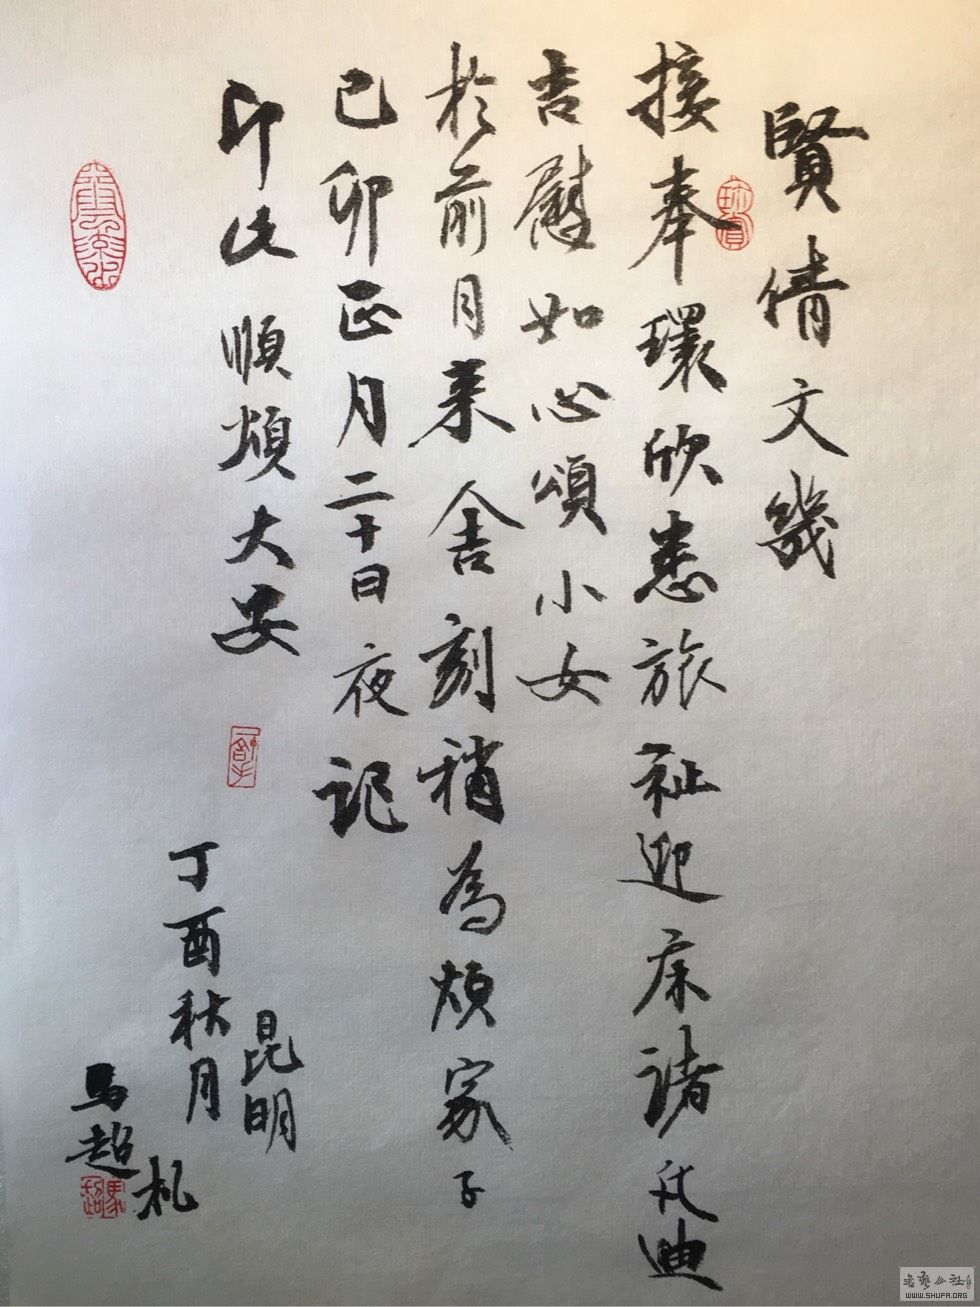 賢倩文幾
接奉環欣悉旅祉迎康諸代迪
吉慰如心頌小女
於前月来舍刻稍為煩家子
己卯正月二十日夜記
即此順煩大安
昆明
丁酉秋月
馬超札
馬超
書藝公社
WWW.SHUFA.ORG